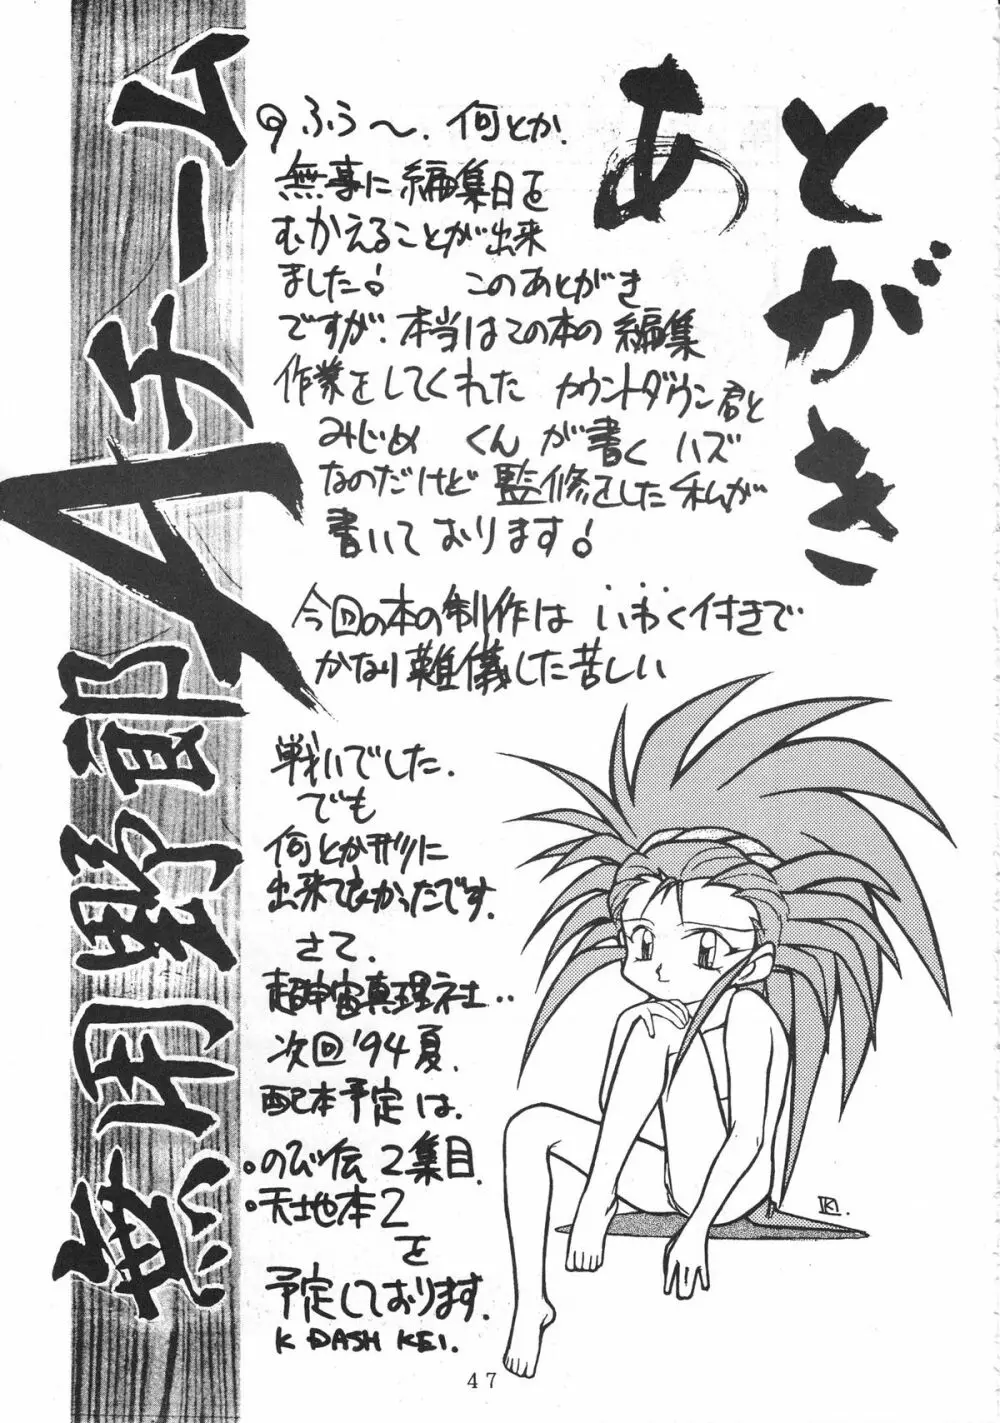 あとがき
ふぅ〜、何とか、
無事に編集日を
むかえることが出来
ました! このあとがき
ですが、本当はこの本の編集
作業をしてくれた カウントダウン君と
みじめ くんが書くハズ
なのだけど監修をした私が
書いております!
今回の本の制作は いわく付きで
かなり難儀した苦しい
戦いでした。
でも
何とかギリに
出来て良かったです。
さて、
超宇宙真理社‥
次回'94夏、
配本予定は、
・のび伝 2集目、
・天地本2
を
予定しております。
K DASH KEI.
K.
47
無用野郎Aチーム